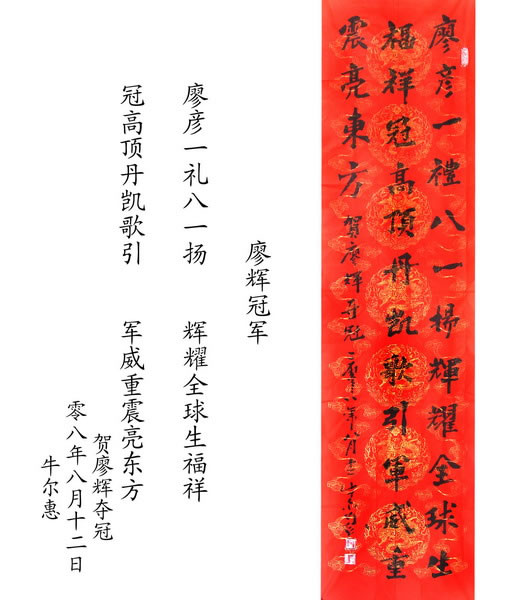 廖彦一禮八一揚輝耀全球生
福祥冠高頂丹凱歌引軍威重
震亮東方 贺廖辉夺冠 八年八月十二
廖辉冠军
廖彦一礼八一扬 辉耀全球生福祥
冠高顶丹凯歌引 军威重震亮东方
贺廖辉夺冠
零八年八月十二日
牛尔惠